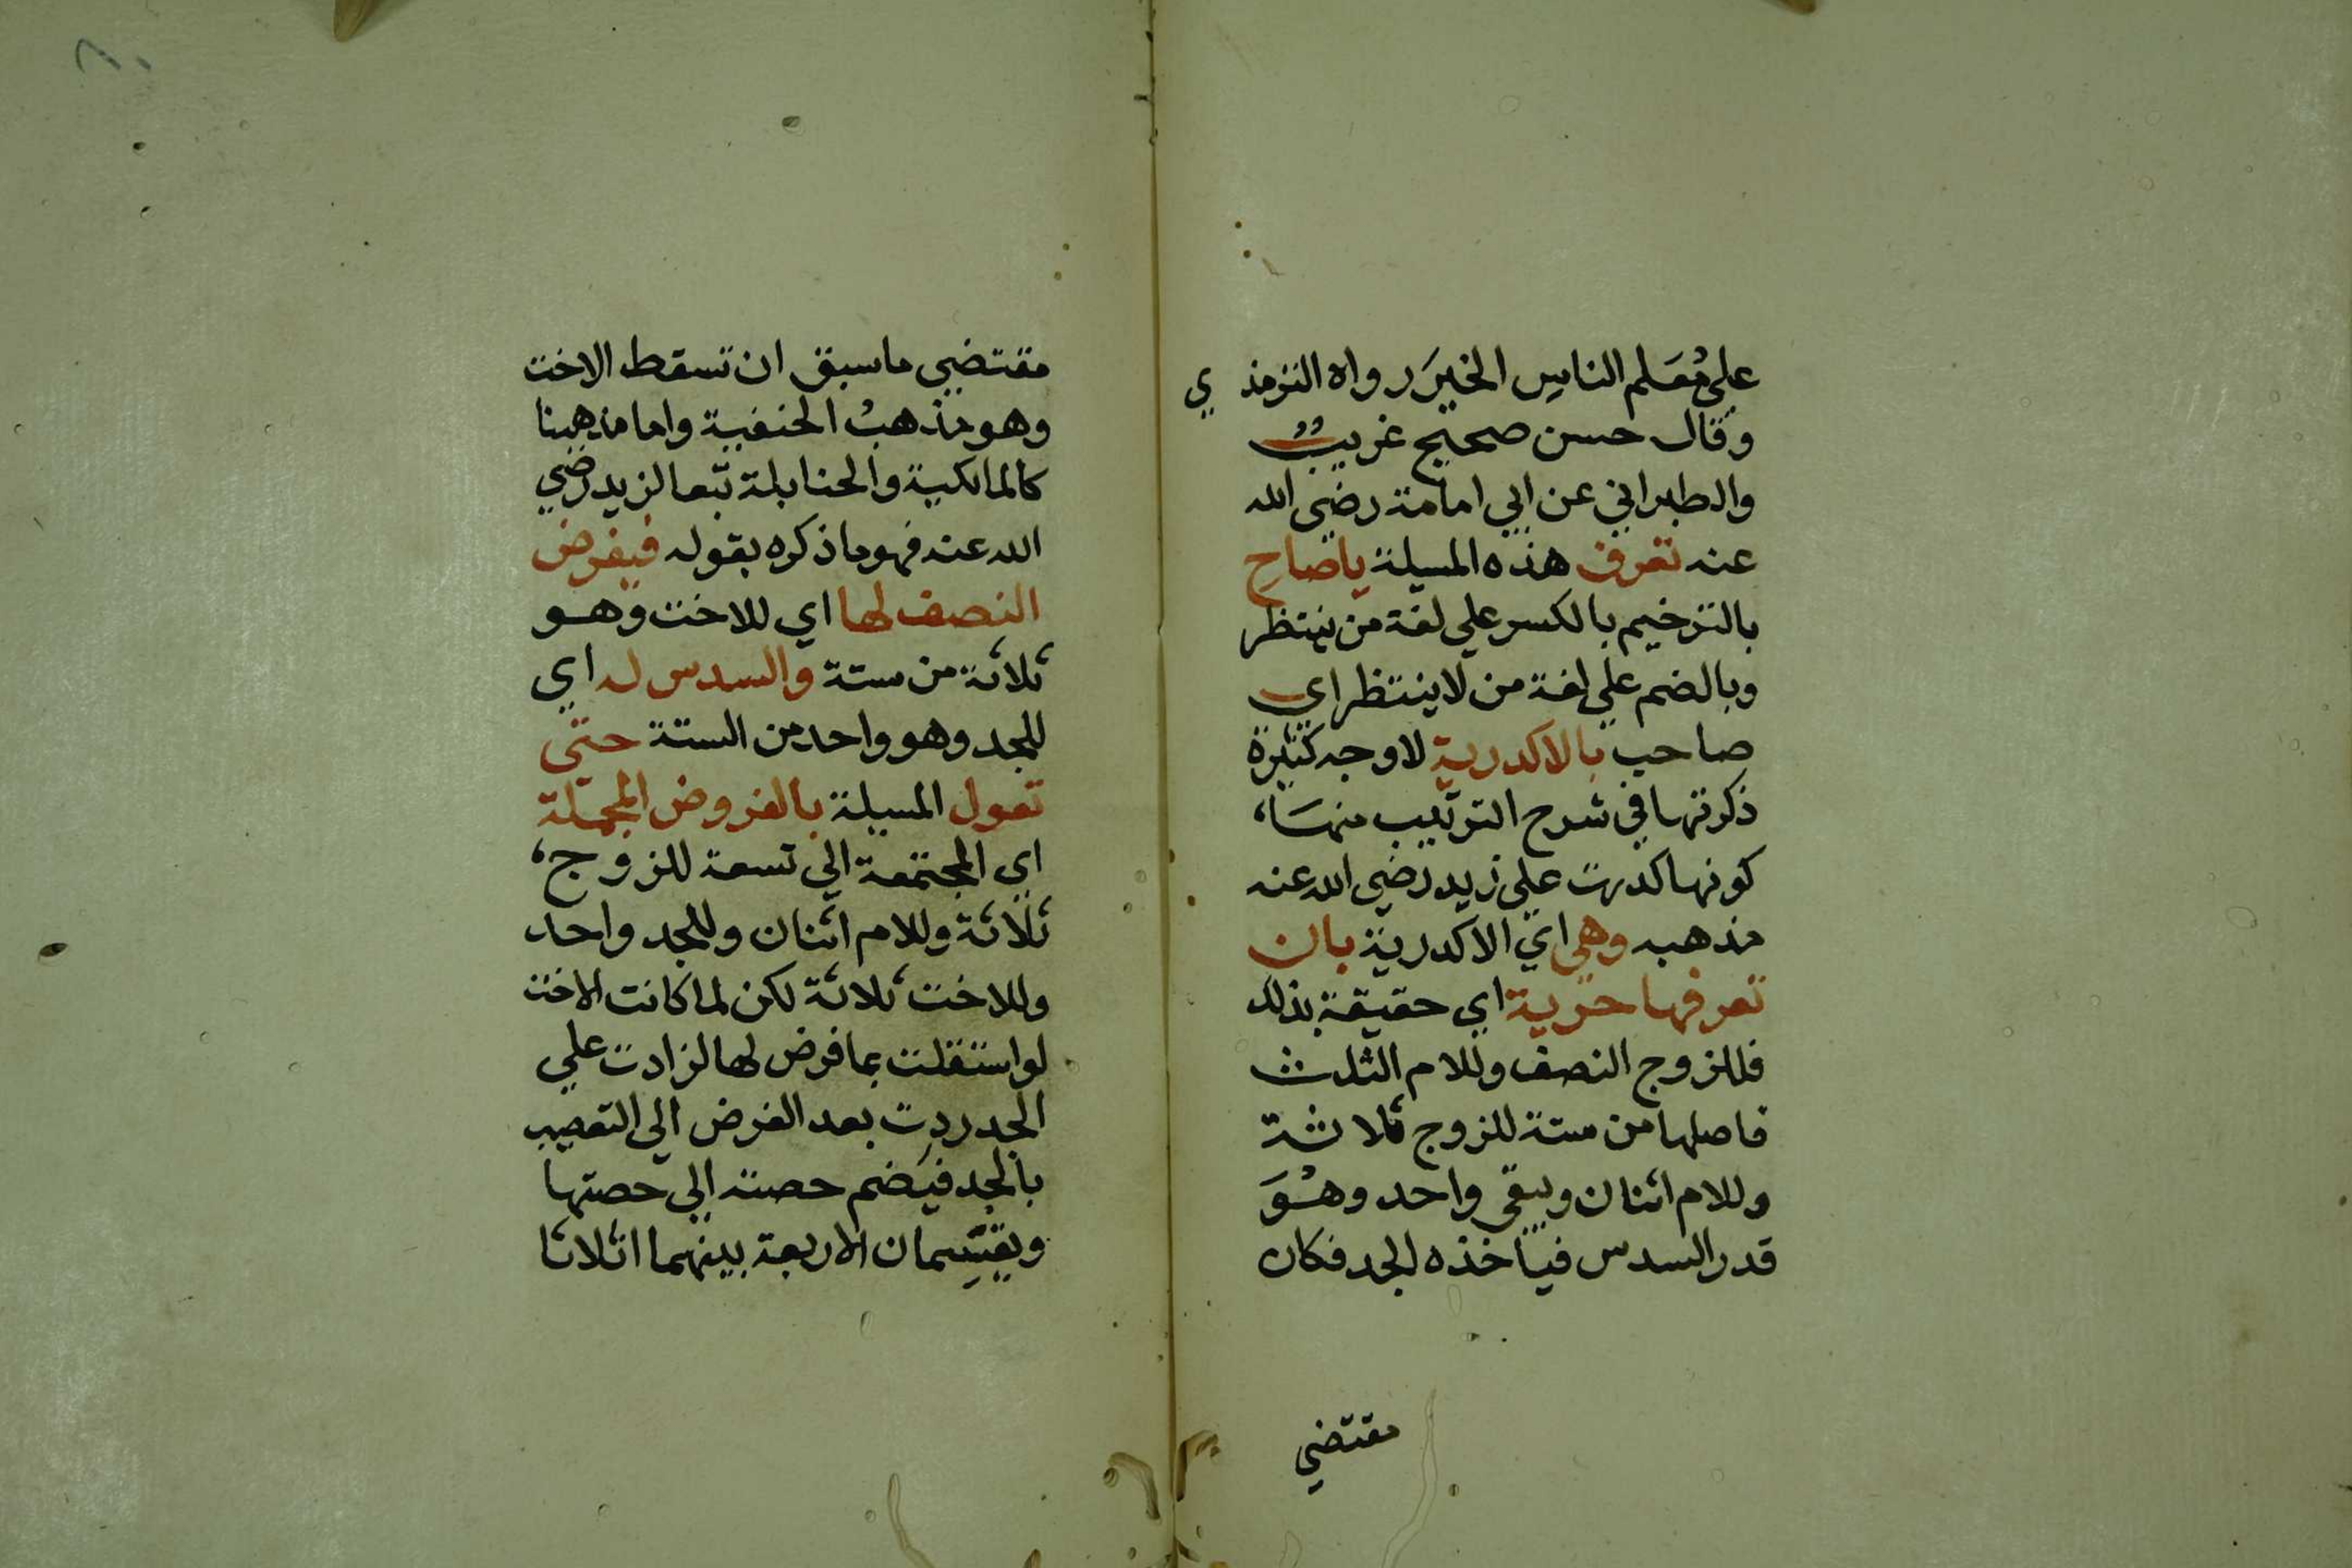 على مُعَلم الناس الخيرَ رواه الترمذي
وقال حسن صحيح غريبٌ
والطبراني عن ابي امامة رضي الله
عنه تعرف هذه المسيلة ياصاح
بالترخيم بالكسر علي لغة من ينتظر
وبالضم علي لغة من لا ينتظر اي
صاحب بالاكدرية لاوجه كثيرة
ذكرتها في شرح الترتيب منهَا،
كونها كدرت على زيد رضي الله عنه
مذهبه وهي اي الاكدرية بان
تعرفها حرية اي حقيقة بذلك
فللزوج النصف وللام الثلث
فاصلها من ستة للزوج ثلاثة
وللام اثنان ويبقى واحد وهُوَ
قدر السدس فيأخذه الجد فكان
مقتضي
مقتضي ما سبق ان تسقط الاخت
وهو مذهبُ الحنفية واما مذهبنا
كالمالكية والحنابلة تبعا لزيد رضي
الله عنه فهو ما ذكره بقوله فيفرض
النصف لها اي للاخت وهو
ثلاثة من ستة والسدس له اي
للجد وهو واحد من الستة حتى
تعول المسيلة بالفروض المجملة
اي المجتمعة الي تسعة للزوج،
ثلاثة وللام اثنان وللجد واحد
وللاخت ثلاثة لكن لما كانت الاخت
لو استقلت بما فرض لها لزادت علي
الجد ردت بعد الفرض الي التعصيب
بالجد فيَضم حصته الي حصتها
ويقتسِمان الاربعة بينهما اثلاثا